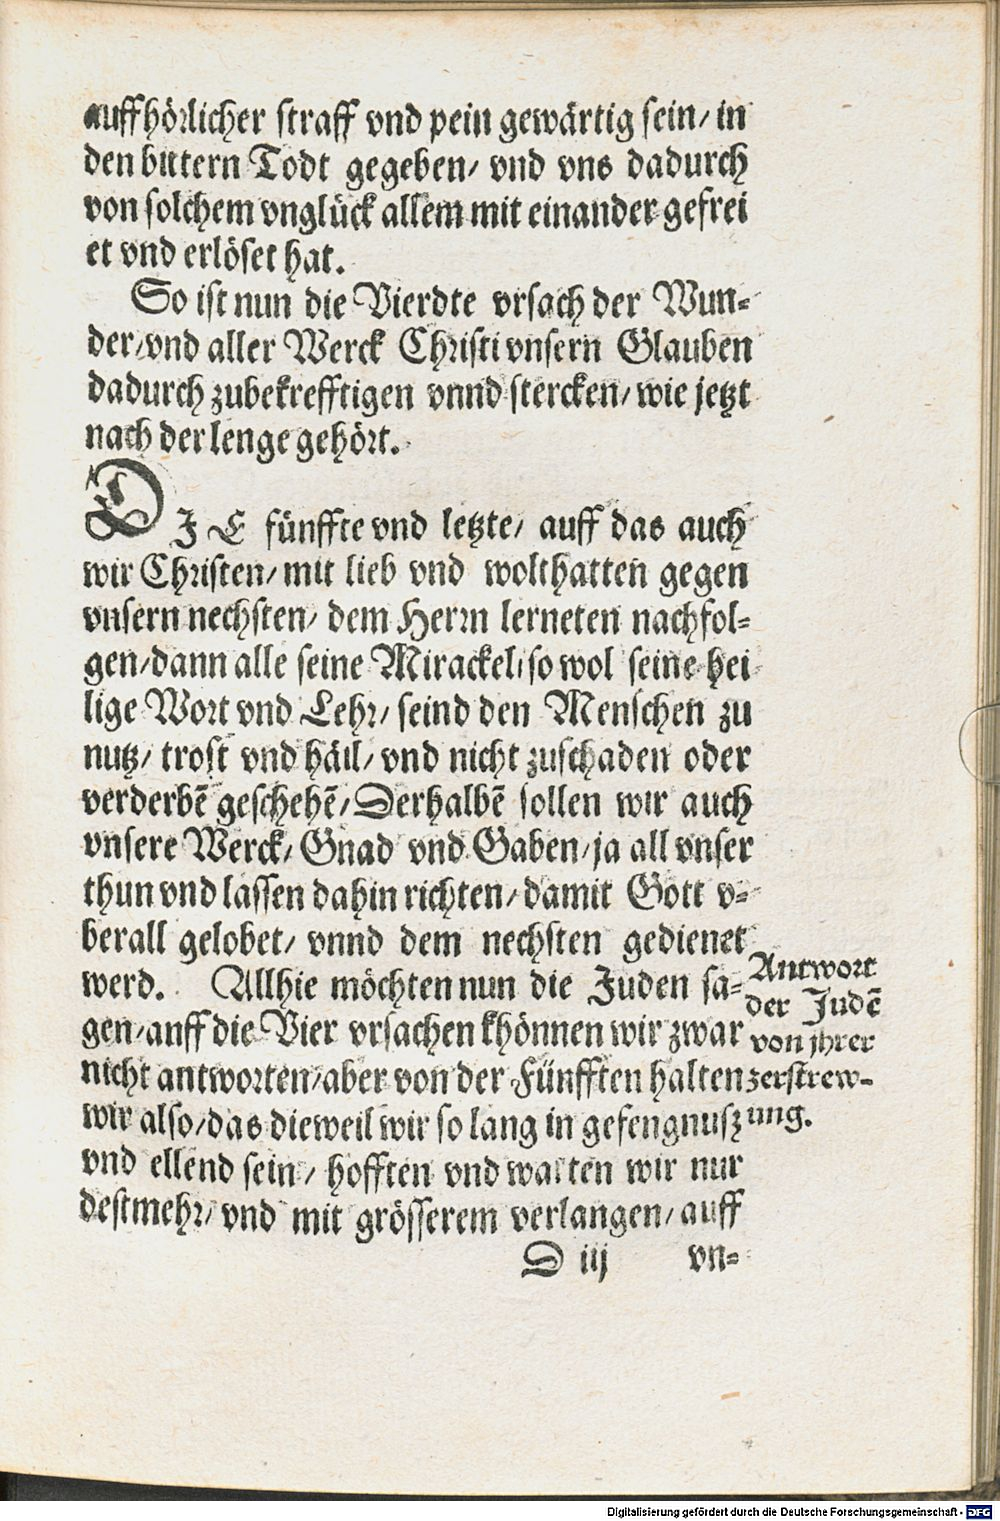 auffhörlicher straff vnd pein gewärtig sein/ in
den bittern Todt gegeben/ vnd vns dadurch
von solchem vnglück allem mit einander gefrei
et vnd erlöset hat.
So ist nun die Vierdte vrsach der Wun-
der/ vnd aller Werck Christi vnsern Glauben
dadurch zubekrefftigen vnnd stercken/ wie jetzt
nach der lenge gehört.
DIE fünffte vnd letzte/ auff das auch
wir Christen/ mit lieb vnd wolthatten gegen
vnsern nechsten/ dem Herrn lerneten nachfol-
gen/ dann alle seine Mirackel/ so wol seine hei
lige Wort vnd Lehr/ seind den Menschen zu
nutz/ trost vnd häil/ vnd nicht zuschaden oder
verderbē geschehē/ Derhalbē sollen wir auch
vnsere Werck/ Gnad vnd Gaben/ ja all vnser
thun vnd lassen dahin richten/ damit Gott v-
berall gelobet/ vnnd dem nechsten gedienet
werd. Allhie möchten nun die Juden sa-
gen/ auff die Vier vrsachen khönnen wir zwar
nicht antworten/ aber von der Fünfften halten
wir also/ das dieweil wir so lang in gefengnusz
vnd ellend sein/ hofften vnd warten wir nur
destmehr/ vnd mit grösserem verlangen/ auff
D iij vn-
Antwort
der Judē
von jhrer
zerstrew-
ung.
Digitalisierung gefördert durch die Deutsche Forschungsgemeinschaft - DFG